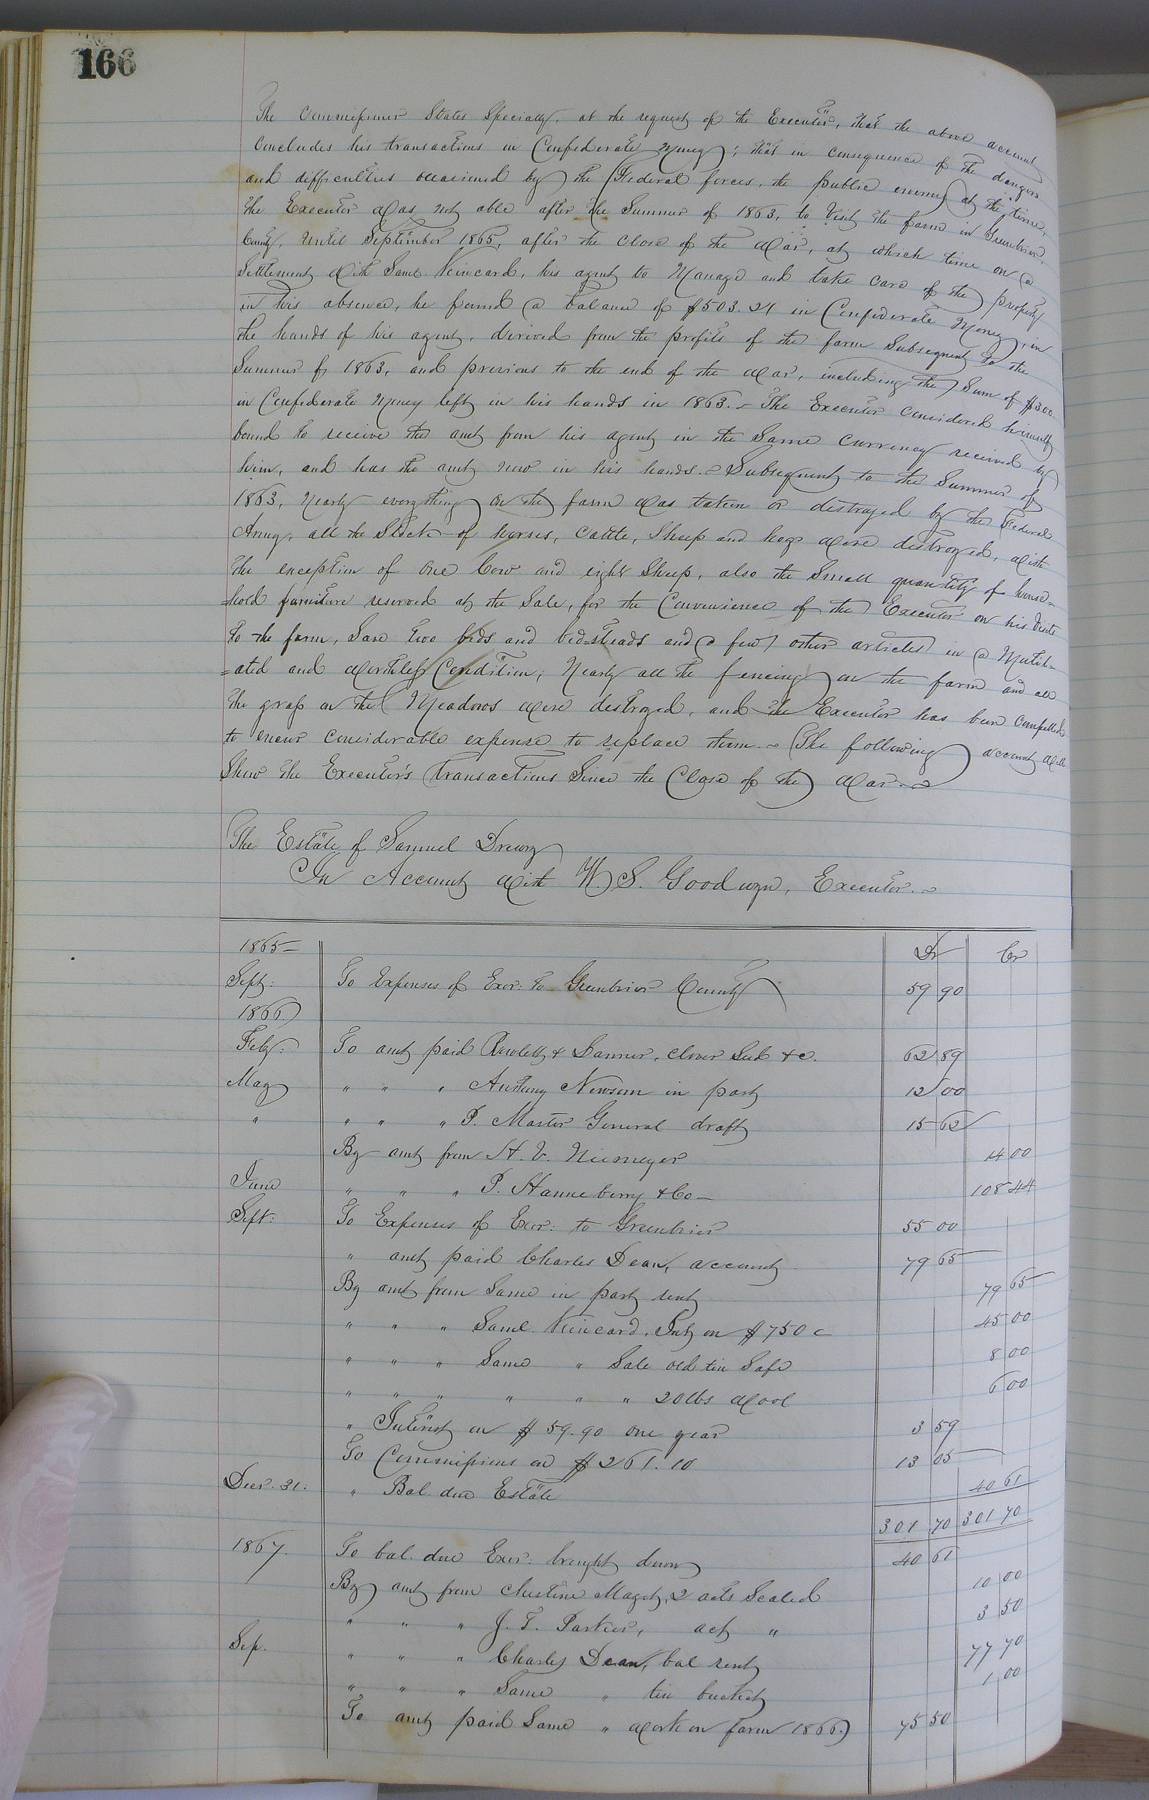 166
The Commissioner States Specially, at the request of the Executor, that the above account
Concludes his transactions in Confederate Money; that in consequence of the dangers
and difficulties occasioned by the Federal forces, the public enemy at the time,
the Executor was not able after the Summer of 1863, to Visit the farm in Greenbrier
County, Until September 1865, after the close of the War, at which time on a
Settlement with Saml. Kincard, his agent to Manage and take care of the property
in his absence, he found a balance of $503.21 in Confederate Money, in
the hands of his agent, derived from the profits of the farm Subsequent to the
Summer of 1863, and previous to the end of the War, including the Sum of $300
in Confederate Money left in his hands in 1863. - The Executor considered himself
bound to receive the amt from his agent in the Same Currency received by
him, and has the amt now in his hands. - Subsequent to the Summer of
1863, Nearly everything on the farm was taken or destroyed by the Federal
Army, all the Stock of horses, Cattle, Sheep and hogs were destroyed, with
the exception of One Cow and eight Sheep, also the Small quantity of house=
=hold furniture reserved at the Sale, for the Convenience of the Executor on his Visits
to the farm, Save two beds and bedsteads and a few other articles in a Mutil=
=ated and Worthless Condition; Nearly all the fencing on the farm and all
the grass on the Meadows were destroyed, and the Executor has been compelled
to incur considerable expense to replace them. - The following account will
Show the Executor's transactions Since the Close of the War. -
The Estate of Samuel Drewry
In Account with W. S. Goodwyn, Executor. -
1865 - Dr Cr
Sept: To Expenses of Exor: to Greenbrier County 59 90
1866
Feby: To amt paid Rowlett & Tanner, Clover Seed &c. 62 89
May " " " Anthony Newsom in part 12 00
" " " " P. Master General draft 15 62
By amt from H. V. Niemeyer 14 00
June " " " P. Hanneberry & Co - 108 44
Sept: To Expenses of Exor: to Greenbrier 55 00
" amt paid Charles Dean, account 79 65
By amt from Same in part rent 79 65
" " " Saml. Kincard, Int on $750 - 45 00
" " " Same " Sale old tin Safe 8 00
" " " " " " 20 lbs Wool 6 00
" Interest on $59.90 one year 3 59
To Commissions on $261.10 13 05
Decr. 31. " Bal due Estate 40 61
301 70 301 70
1867. To bal. due Exor: brought down 40 61
By amt from Christine Maget, 2 acts Sealed 10 00
" " " J. T. Parker, act " 3 50
Sep. " " " Charles Dean, bal rent 77 70
" " " Same " tin bucket 1 00
To amt paid Same " Work on farm 1866 75 50